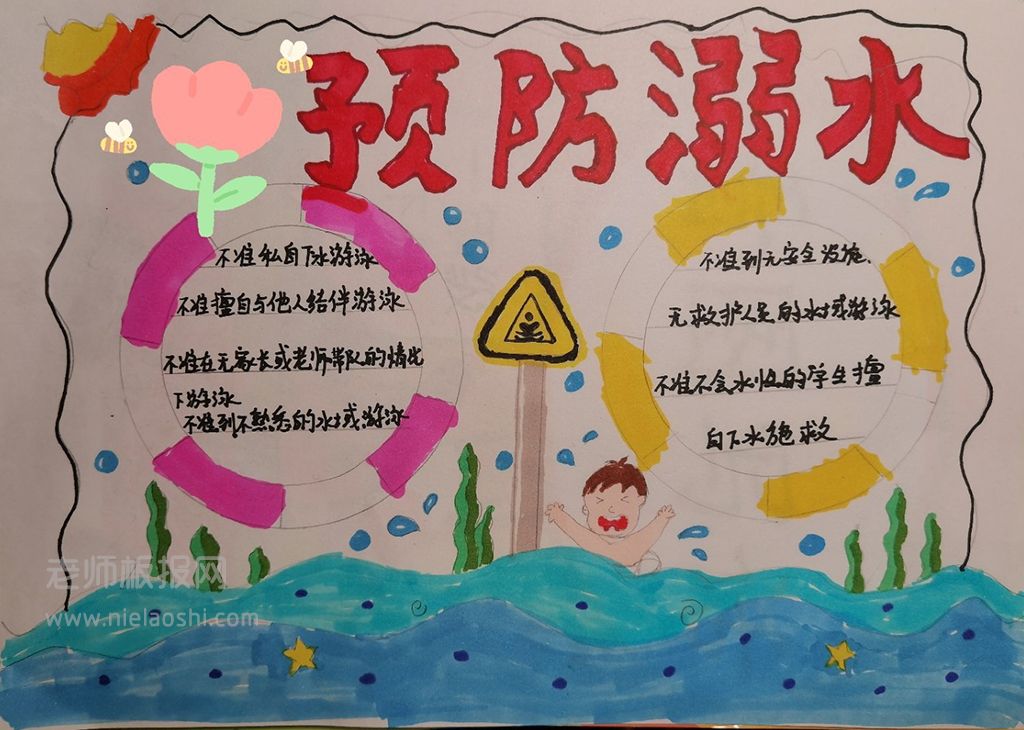 预防溺水
不准私自下水游泳
不准擅自与他人结伴游泳
不准在无家长或老师带队的情况
下游泳
不准到不熟悉的水域游泳
不准到无安全设施、
无救护人员的水域游泳
不准不会水性的学生擅
自下水施救
老师板报网
www.nielaoshi.com